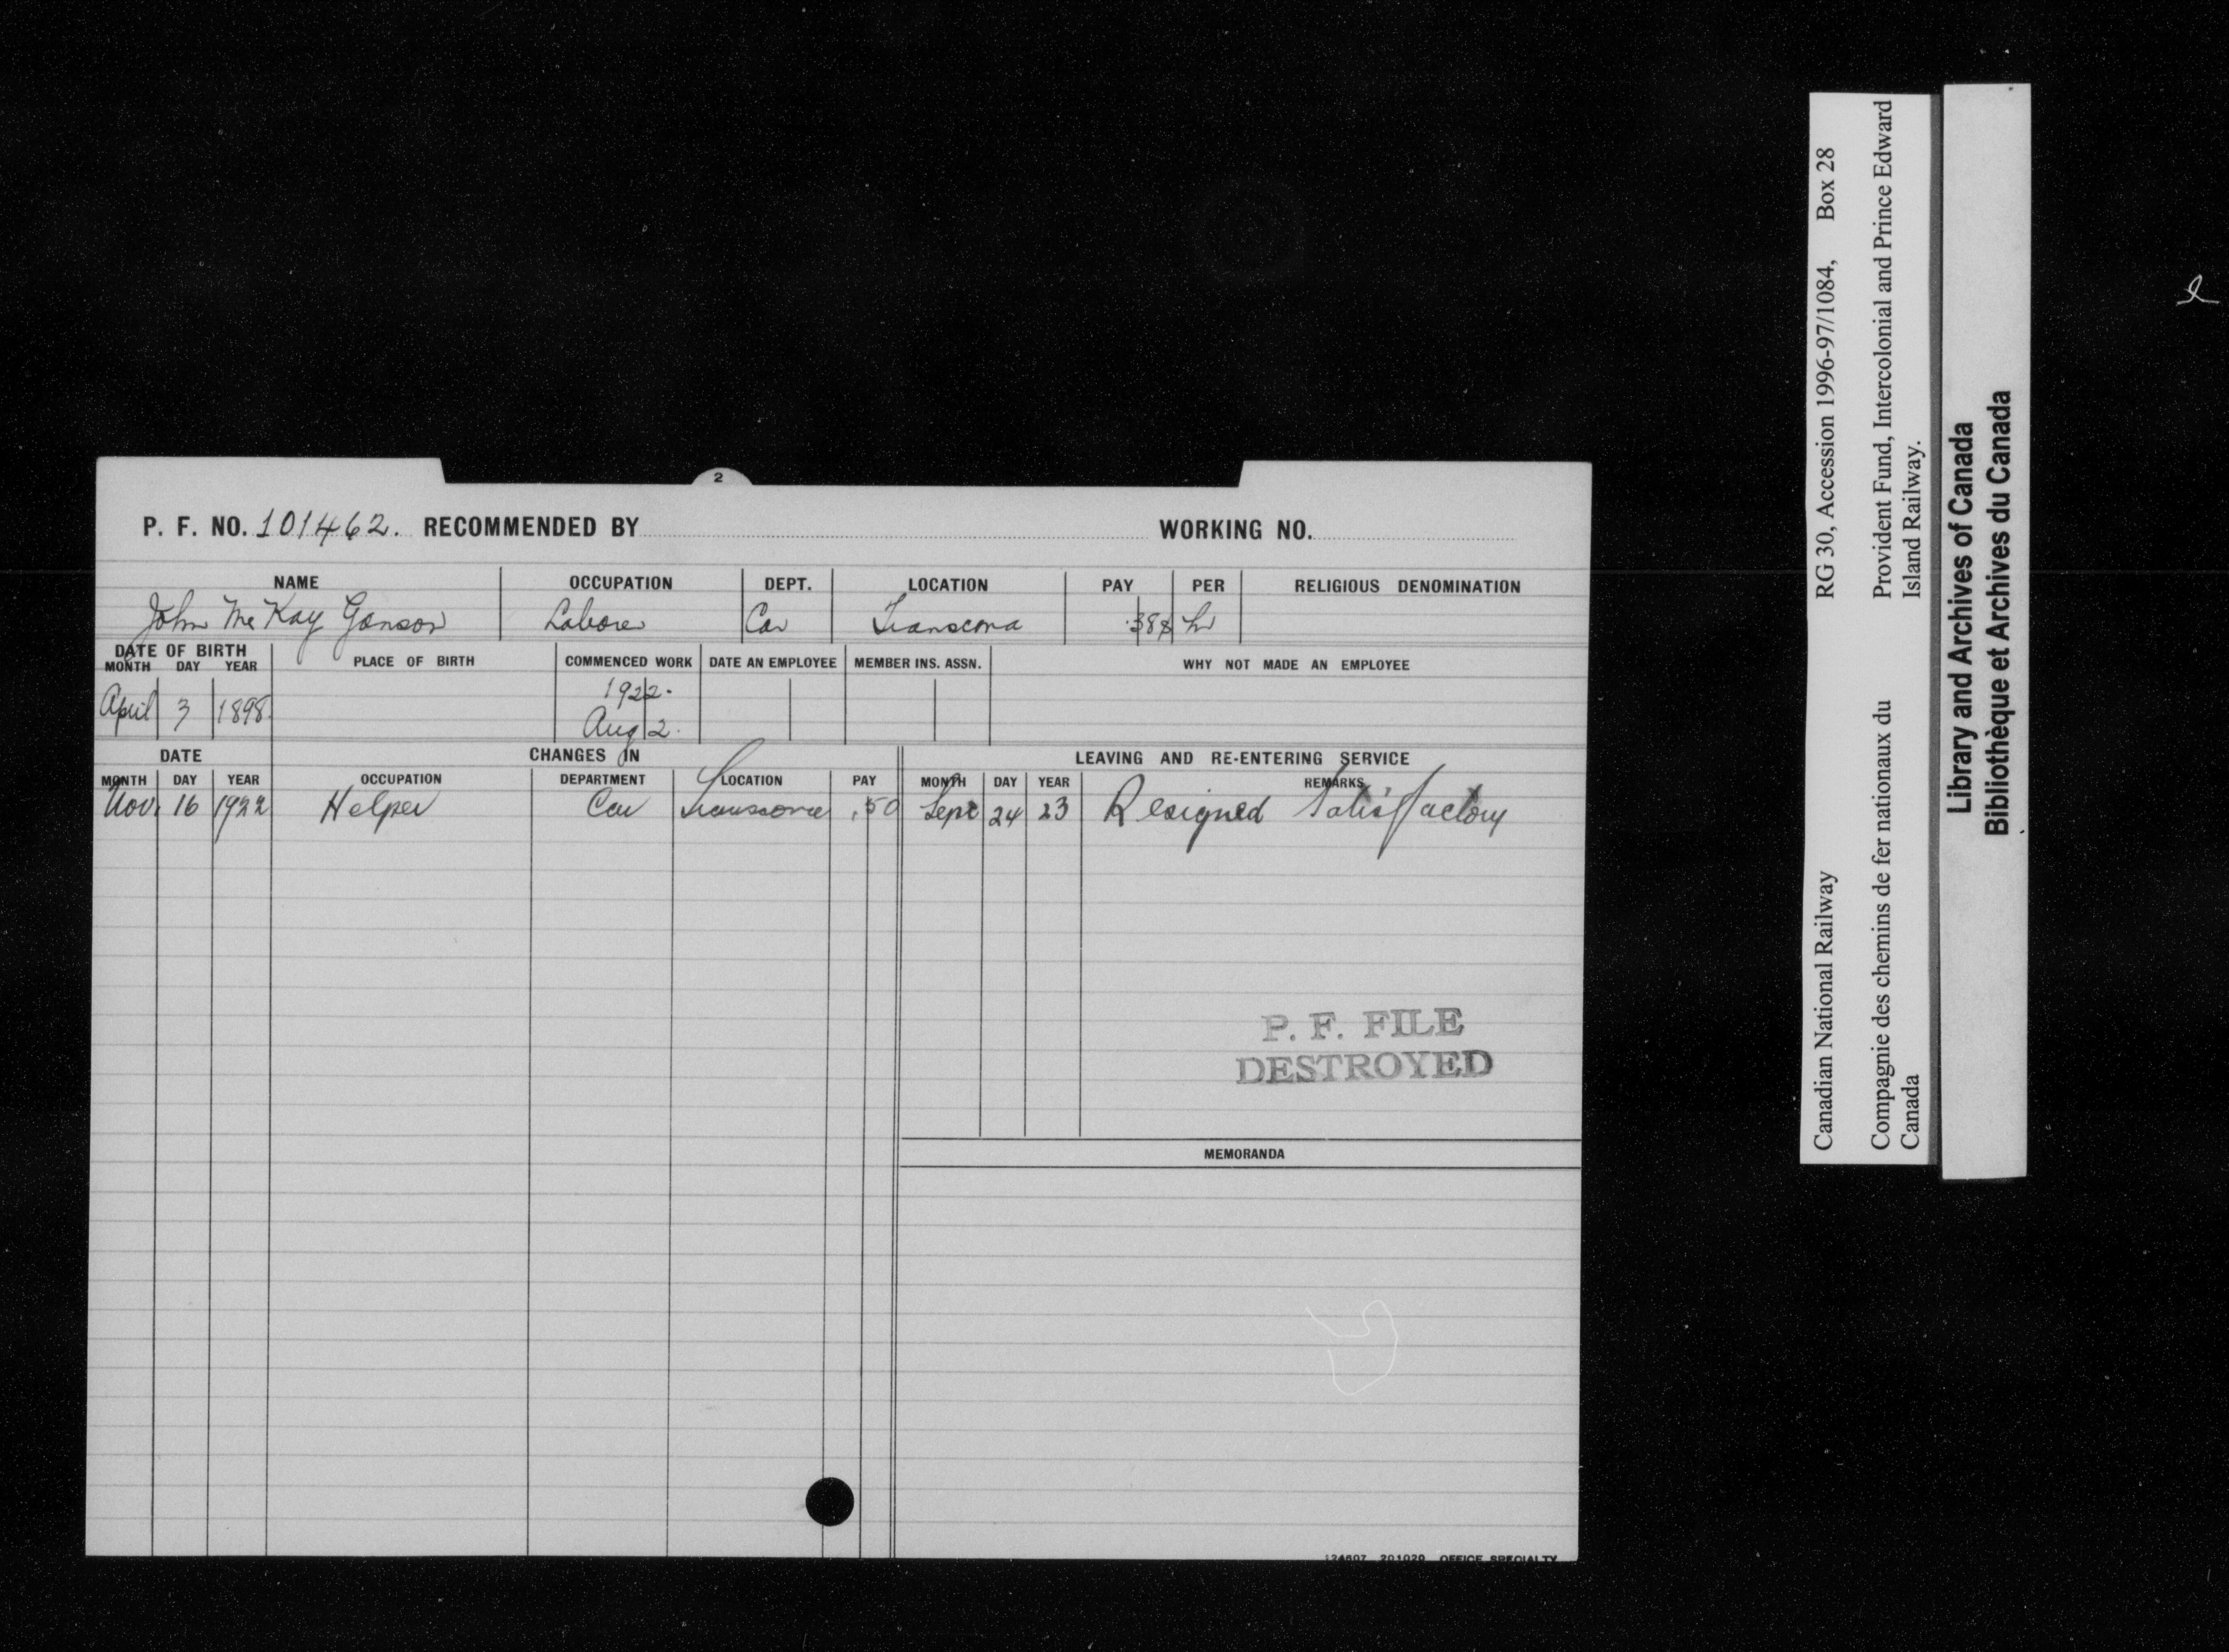 2
P. F. NO. 101462. RECOMMENDED BY WORKING NO.
NAME OCCUPATION DEPT. LOCATION PAY PER RELIGIOUS DENOMINATION
John McKay Ganson Laborer Car Transcona hr
DATE OF BIRTH
MONTH DAY YEAR PLACE OF BIRTH COMMENCED WORK DATE AN EMPLOYEE MEMBER INS. ASSN. WHY NOT MADE AN EMPLOYEE
April 3 1898 1922.
Aug 2.
DATE CHANGES IN LEAVING AND RE-ENTERING SERVICE
MONTH DAY YEAR OCCUPATION DEPARTMENT LOCATION PAY MONTH DAY YEAR REMARKS
Nov. 16 1922 Helper Car Transcona .50 Sept 24 23 Resigned Satisfactory
P. F. FILE
DESTROYED
MEMORANDA
124607 201029 OFFICE SPECIALTY
Canadian National Railway RG 30, Accession 1996-97/1084, Box 28
Compagnie des chemins de fer nationaux du Provident Fund, Intercolonial and Prince Edward
Canada Island Railway.
Library and Archives of Canada
Bibliothèque et Archives du Canada